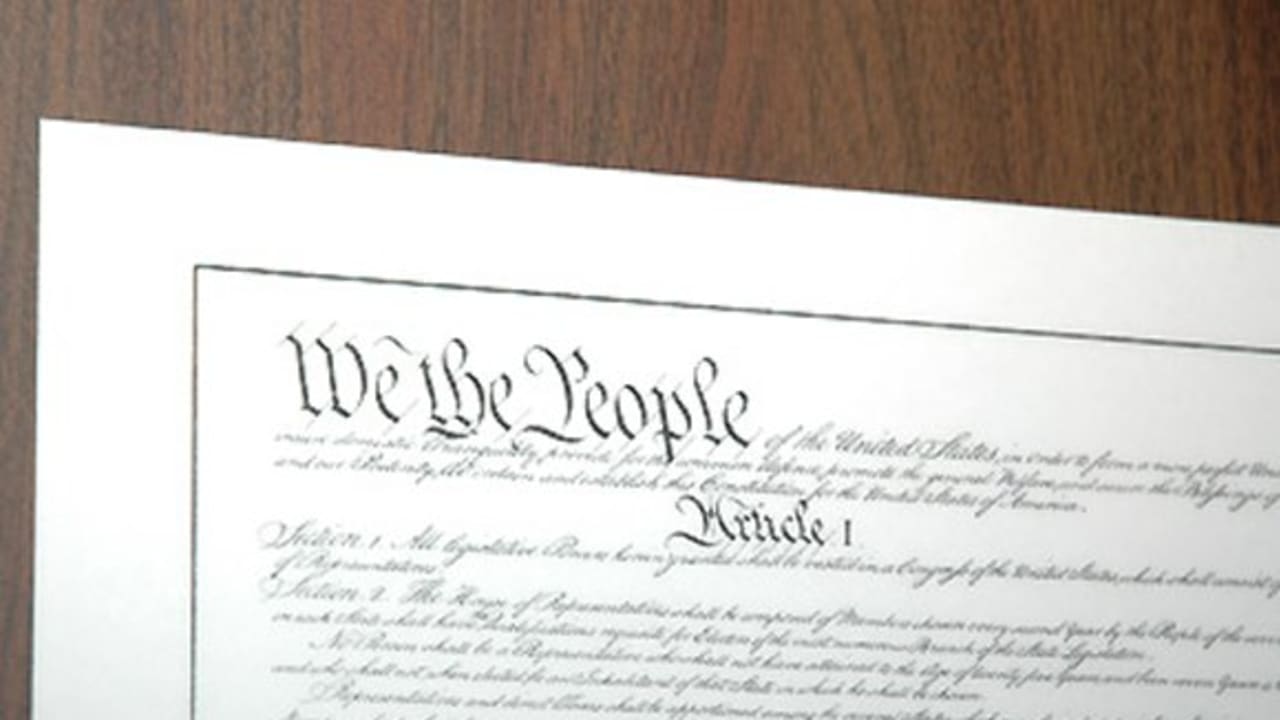 We the People of the United States, in order to form a more perfect
domestic Tranquility, provide for the common defence, promote the general Welfare, and secure the Blessings of
and our Posterity, do ordain and establish this Constitution for the United States of America.
Article I
Section 1. All legislative Powers herein granted shall be vested in a Congress of the United States, which shall consist
of Representatives
Section 2. The House of Representatives shall be composed of Members chosen every second Year by the People of the
in each State shall have the Qualifications requisite for Electors of the most numerous Branch of the State Legislature.
No Person shall be a Representative who shall not have attained to the Age of twenty five Years, and been seven Years a
and who shall not, when elected, be an Inhabitant of that State in which he shall be chosen.
Representatives and direct Taxes shall be apportioned among the several States which